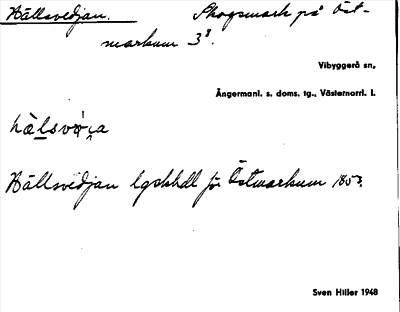 Hällsvedjan. Skogsmark på Öst-
markum 3³.
Vibyggerå sn,
Ångermanl. s. doms. tg., Västernorrl. l.
Hällsvedjan lgskhdl för Östmarkum 1853.
Sven Hiller 1948